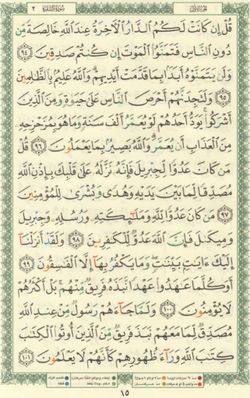 الجزء الأول سورة البقرة ٢
قُلْ إِن كَانَتْ لَكُمُ ٱلدَّارُ ٱلْـَٔاخِرَةُ عِندَ ٱللَّهِ خَالِصَةً مِّن
دُونِ ٱلنَّاسِ فَتَمَنَّوُا۟ ٱلْمَوْتَ إِن كُنتُمْ صَـٰدِقِينَ ٩٤
وَلَن يَتَمَنَّوْهُ أَبَدًۢا بِمَا قَدَّمَتْ أَيْدِيهِمْ وَٱللَّهُ عَلِيمٌۢ بِٱلظَّـٰلِمِينَ
٩٥ وَلَتَجِدَنَّهُمْ أَحْرَصَ ٱلنَّاسِ عَلَىٰ حَيَوٰةٍ وَمِنَ ٱلَّذِينَ
أَشْرَكُوا۟ يَوَدُّ أَحَدُهُمْ لَوْ يُعَمَّرُ أَلْفَ سَنَةٍ وَمَا هُوَ بِمُزَحْزِحِهِۦ
مِنَ ٱلْعَذَابِ أَن يُعَمَّرَ وَٱللَّهُ بَصِيرٌۢ بِمَا يَعْمَلُونَ ٩٦ قُلْ
مَن كَانَ عَدُوًّا لِّجِبْرِيلَ فَإِنَّهُۥ نَزَّلَهُۥ عَلَىٰ قَلْبِكَ بِإِذْنِ ٱللَّهِ
مُصَدِّقًا لِّمَا بَيْنَ يَدَيْهِ وَهُدًى وَبُشْرَىٰ لِلْمُؤْمِنِينَ
٩٧ مَن كَانَ عَدُوًّا لِّلَّهِ وَمَلَـٰٓئِكَتِهِۦ وَرُسُلِهِۦ وَجِبْرِيلَ
وَمِيكَىٰلَ فَإِنَّ ٱللَّهَ عَدُوٌّ لِّلْكَـٰفِرِينَ ٩٨ وَلَقَدْ أَنزَلْنَآ
إِلَيْكَ ءَايَـٰتٍۭ بَيِّنَـٰتٍ وَمَا يَكْفُرُ بِهَآ إِلَّا ٱلْفَـٰسِقُونَ ٩٩
أَوَكُلَّمَا عَـٰهَدُوا۟ عَهْدًا نَّبَذَهُۥ فَرِيقٌ مِّنْهُم بَلْ أَكْثَرُهُمْ
لَا يُؤْمِنُونَ ١٠٠ وَلَمَّا جَآءَهُمْ رَسُولٌ مِّنْ عِندِ ٱللَّهِ
مُصَدِّقٌ لِّمَا مَعَهُمْ نَبَذَ فَرِيقٌ مِّنَ ٱلَّذِينَ أُوتُوا۟ ٱلْكِتَـٰبَ
كِتَـٰبَ ٱللَّهِ وَرَآءَ ظُهُورِهِمْ كَأَنَّهُمْ لَا يَعْلَمُونَ ١٠١
١٥